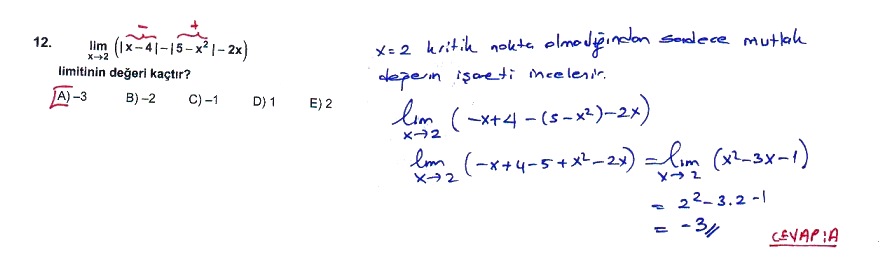 12. lim x→2 (|x−4|−|5−x²|−2x)
− +
limitinin değeri kaçtır?
A) −3 B) −2 C) −1 D) 1 E) 2
x=2 kritik nokta olmadığından sadece mutlak
değerin işareti incelenir.
lim x→2 (−x+4−(5−x²)−2x)
lim x→2 (−x+4−5+x²−2x) = lim x→2 (x²−3x−1)
= 2²−3.2−1
= −3//
CEVAP:A